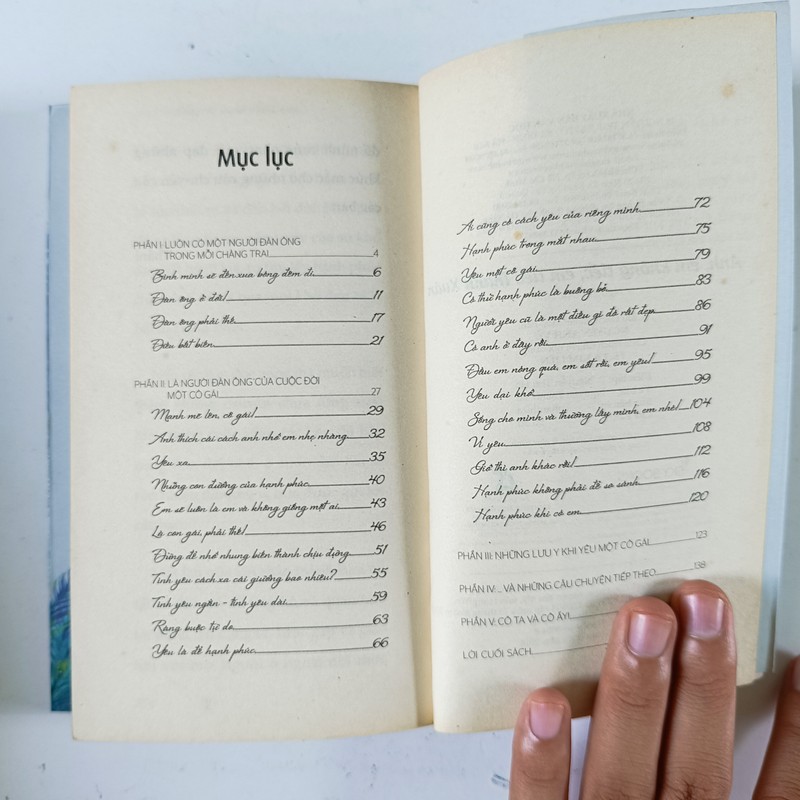 Mục lục
PHẦN I: LUÔN CÓ MỘT NGƯỜI ĐÀN ÔNG
TRONG MỖI CHÀNG TRAI 4
Bình minh sẽ đến xua bóng đêm đi 6
Đàn ông ở đời! 11
Đàn ông phải thế 17
Dấu bất biến 21
PHẦN II: LÀ NGƯỜI ĐÀN ÔNG CỦA CUỘC ĐỜI
MỘT CÔ GÁI 27
Mạnh mẽ lên, cô gái! 29
Anh thích cái cách anh nhớ em nhẹ nhàng 32
Yêu xa 35
Những con đường của hạnh phúc 40
Em sẽ luôn là em và không giống một ai 43
Là con gái, phải thế! 46
Đừng để nhớ nhung biến thành chịu đựng 51
Tình yêu cách xa cái giường bao nhiêu? 55
Tình yêu ngắn - tình yêu dài 59
Ràng buộc tự do 63
Yêu là để hạnh phúc 66
Ai cũng có cách yêu của riêng mình 72
Hạnh phúc trong mắt nhau 75
Yêu một cô gái 79
Có thứ hạnh phúc là buông bỏ 83
Người yêu cũ là một điều gì đó rất đẹp 86
Có anh ở đây rồi 91
Đầu em nóng quá, em sốt rồi, em yêu! 95
Yêu dại khờ 99
Sống cho mình và thương lấy mình, em nhé! 104
Vì yêu 108
Giờ thì anh khác rồi! 112
Hạnh phúc không phải để so sánh 116
Hạnh phúc khi có em 120
PHẦN III: NHỮNG LƯU Ý KHI YÊU MỘT CÔ GÁI 123
PHẦN IV: ... VÀ NHỮNG CÂU CHUYỆN TIẾP THEO 138
PHẦN V: CÔ TA VÀ CÔ ẤY!
LỜI CUỐI SÁCH